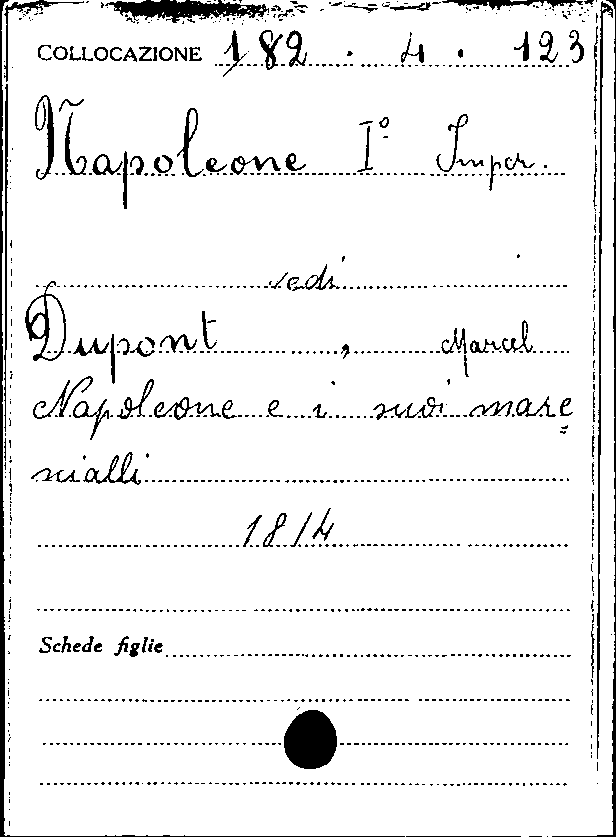 COLLOCAZIONE 182 . 4 . 123
Napoleone I° Imper.
vedi
Dupont , Marcel
Napoleone e i suoi mare
scialli
1814
Schede figlie